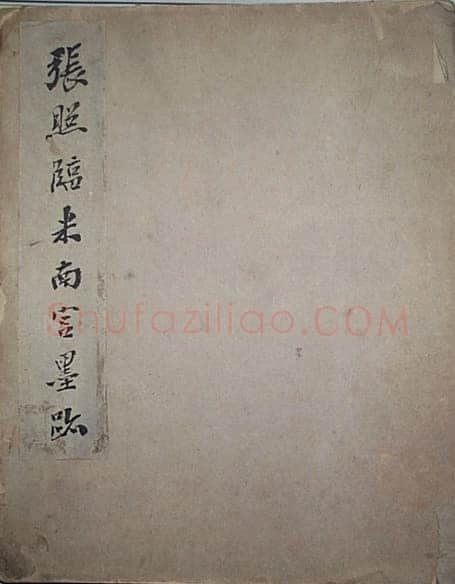 張照臨米南宮墨跡
Shufaziliao.COM